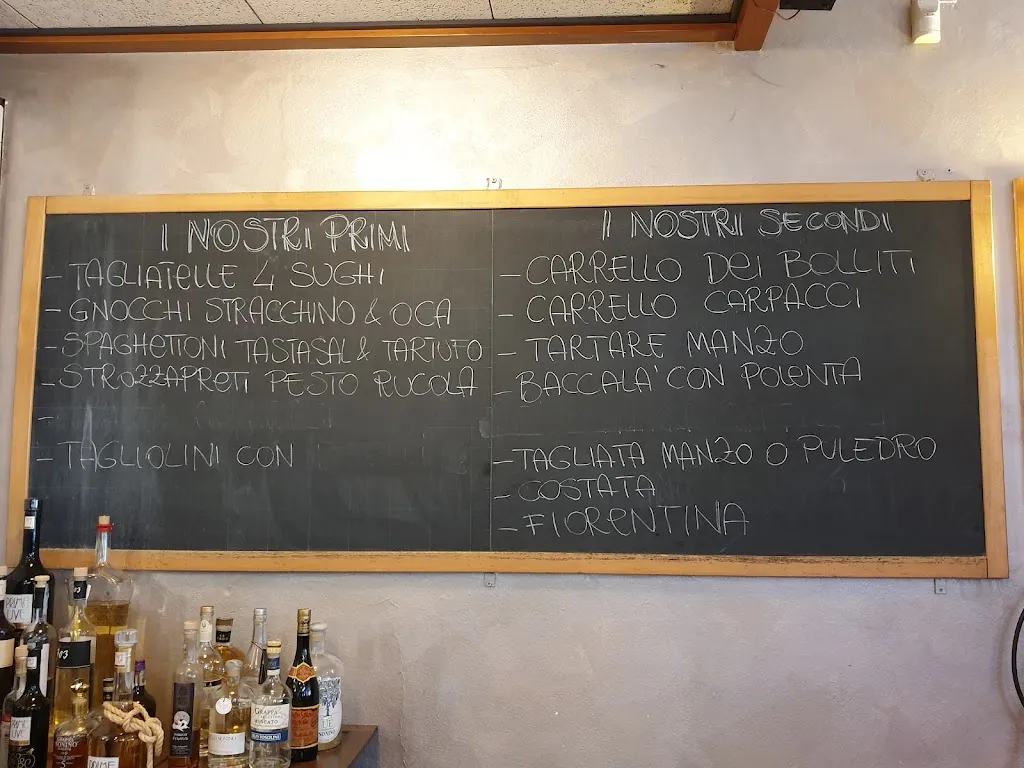 I NOSTRI PRIMI
- TAGLIATELLE 4 SUGHI
- GNOCCHI STRACCHINO & OCA
- SPAGHETTONI TASTASAL & TARTUFO
- STROZZAPRETI PESTO RUCOLA
-
- TAGLIOLINI CON
I NOSTRI SECONDI
- CARRELLO DEI BOLLITI
- CARRELLO CARPACCI
- TARTARE MANZO
- BACCALA' CON POLENTA
- TAGLIATA MANZO O PULEDRO
- COSTATA
- FIORENTINA
PRIME
UVE
PRIME
UVE
GRAPPA
MOSCATO
NONINO
PRIME